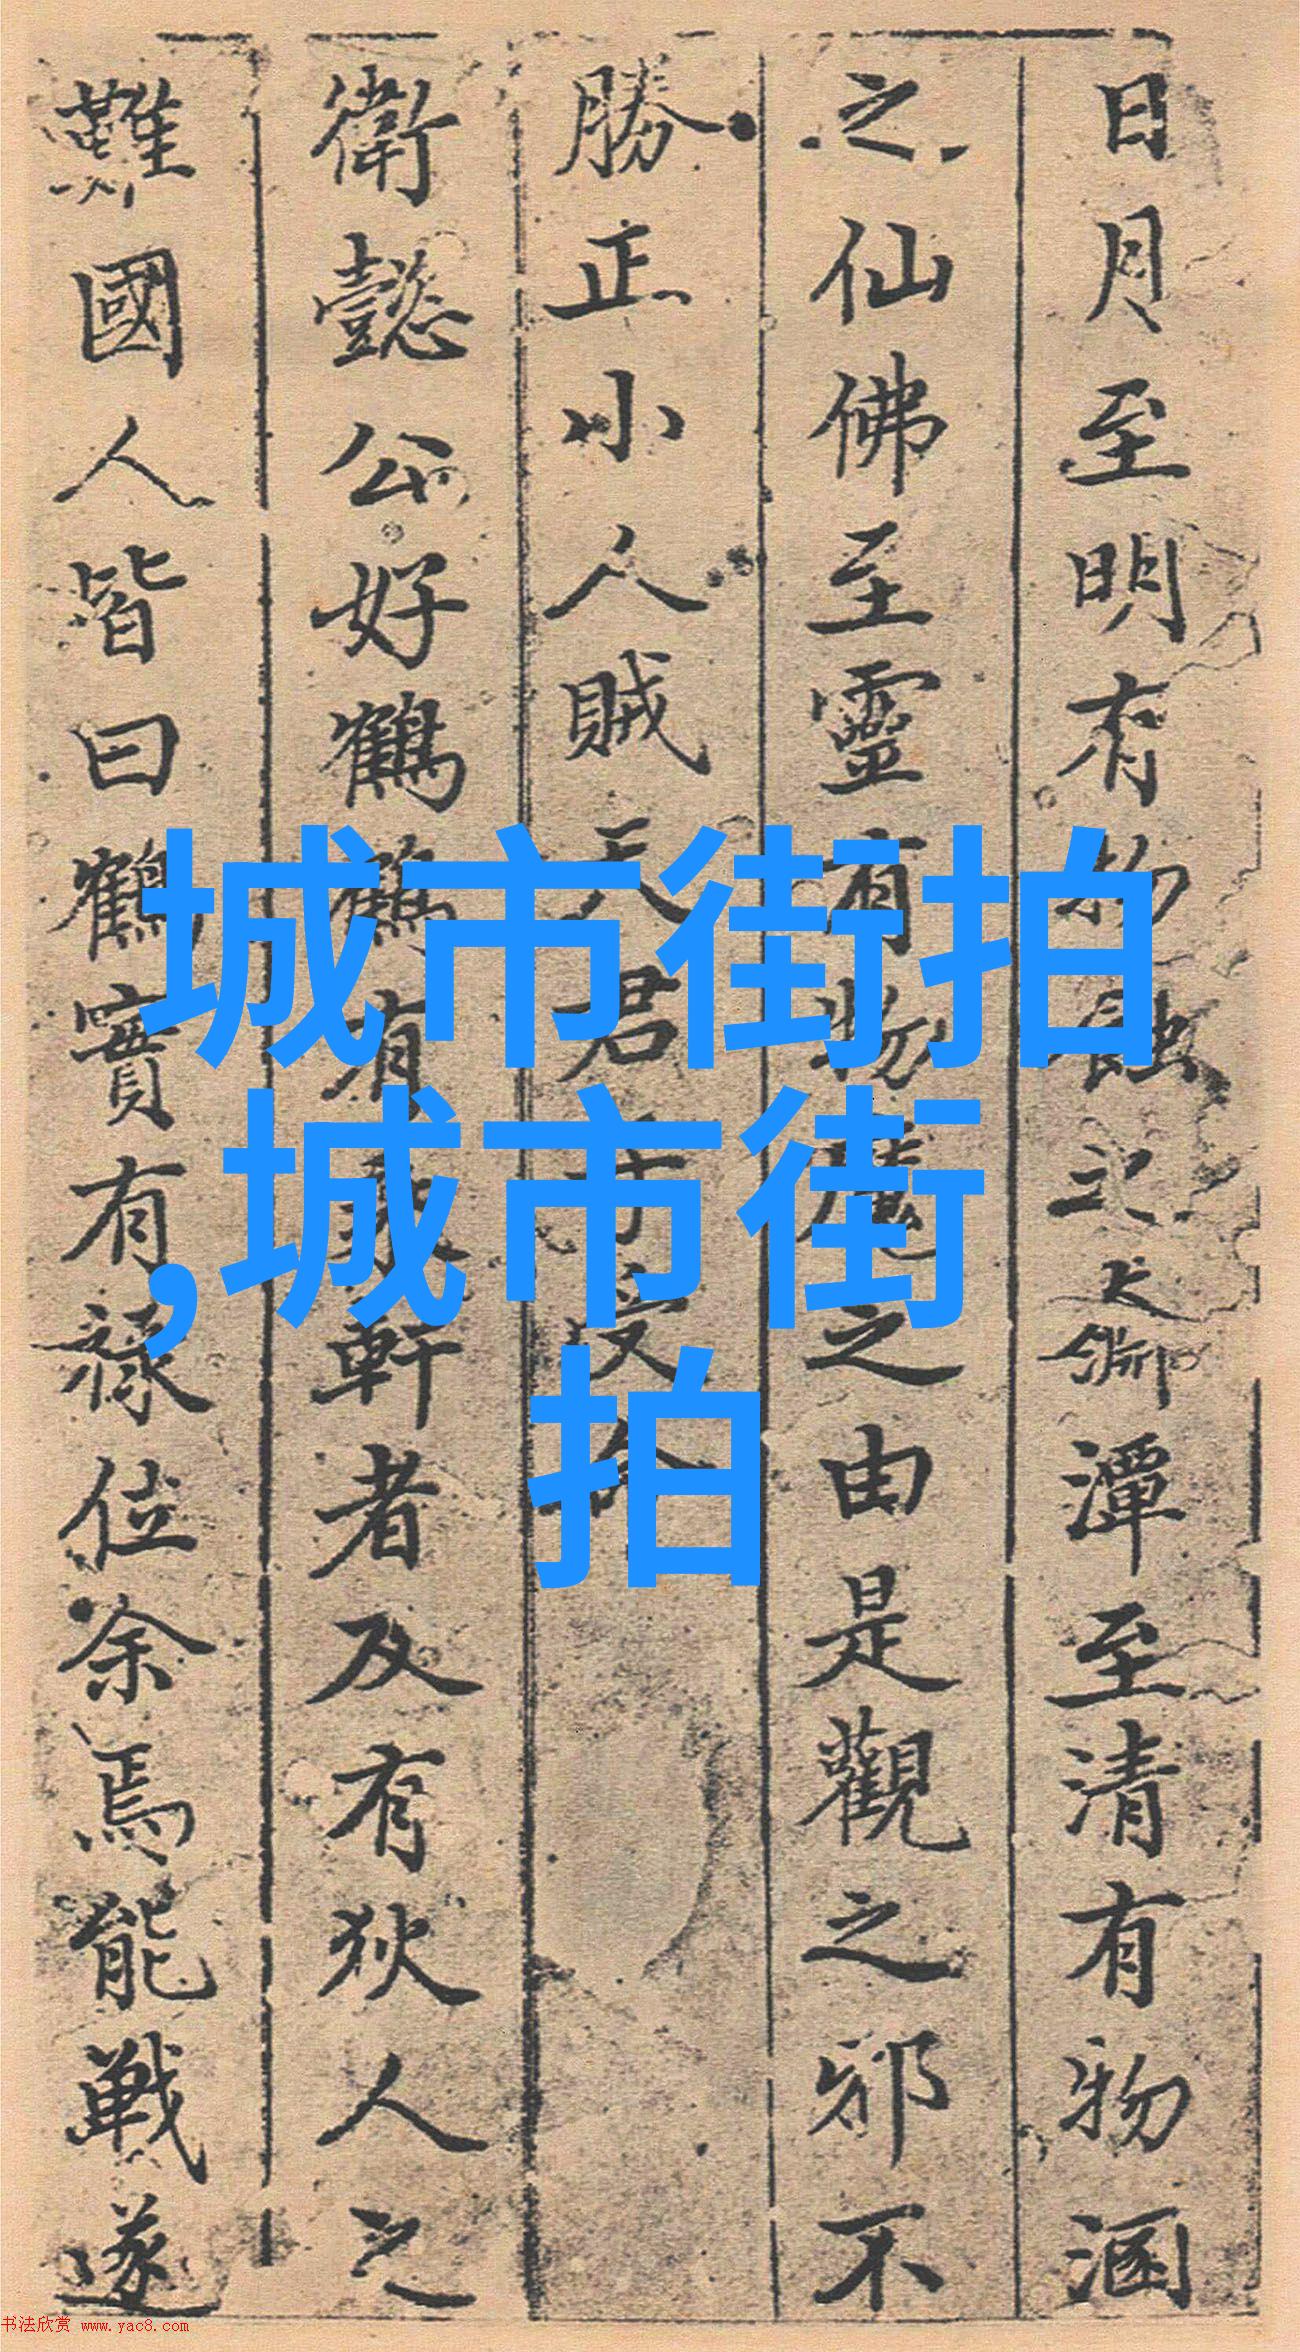 日月至明有物蝕之大潭至清有物涵
之仙佛至靈有物魔之由是觀之邪不
勝正小人賊天君
衛懿公好鶴鶴有乘軒者及有狄人之
難國人皆曰鶴實有祿位余焉能戰遂
城市街拍
,城市街
拍
书法欣赏 www.yac8.com